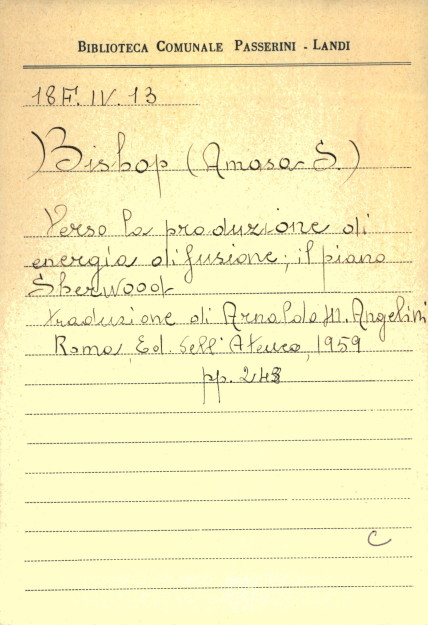 BIBLIOTECA COMUNALE PASSERINI - LANDI
18F. IV. 13
Bishop (Amasa S.)
Verso la produzione di
energia di fusione; il piano
Sherwood
traduzione di Arnaldo M. Angelini
Roma, Ed. dell'Ateneo, 1959
pp. 248
C